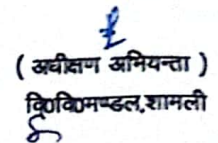 ( अधीक्षण अभियन्ता )
वि0वि0मण्डल,शामली